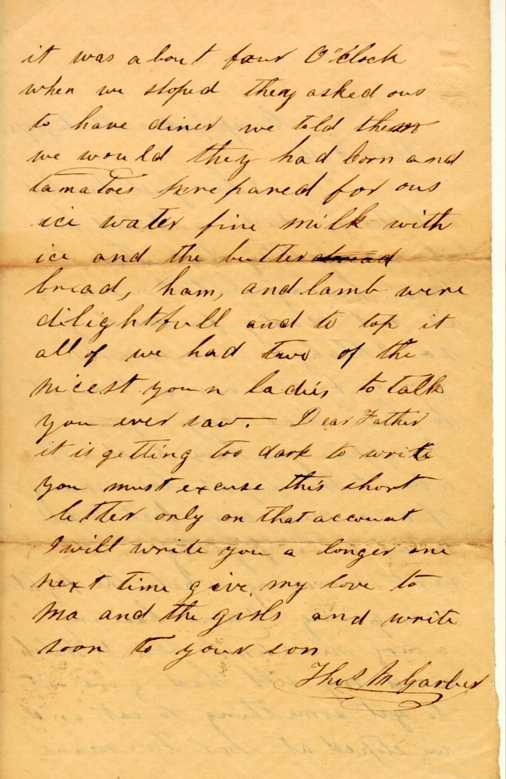 it was about four O'clock
when we stoped they asked ous
to have diner we told them
we would they had corn and
tamatoes prrepared for ous
ice water fine milk with
ice and the butter
bread, ham, and lamb were
dilightfull and to top it
all of we had two of the
nicest youn ladies to talk
you ever saw. Dear Father
it is getting too dark to write
you must excuse this short
letter only on that account
I will write you a longer one
next time give my love to
Ma and the girls and write
soon to your son
Thos M Garber